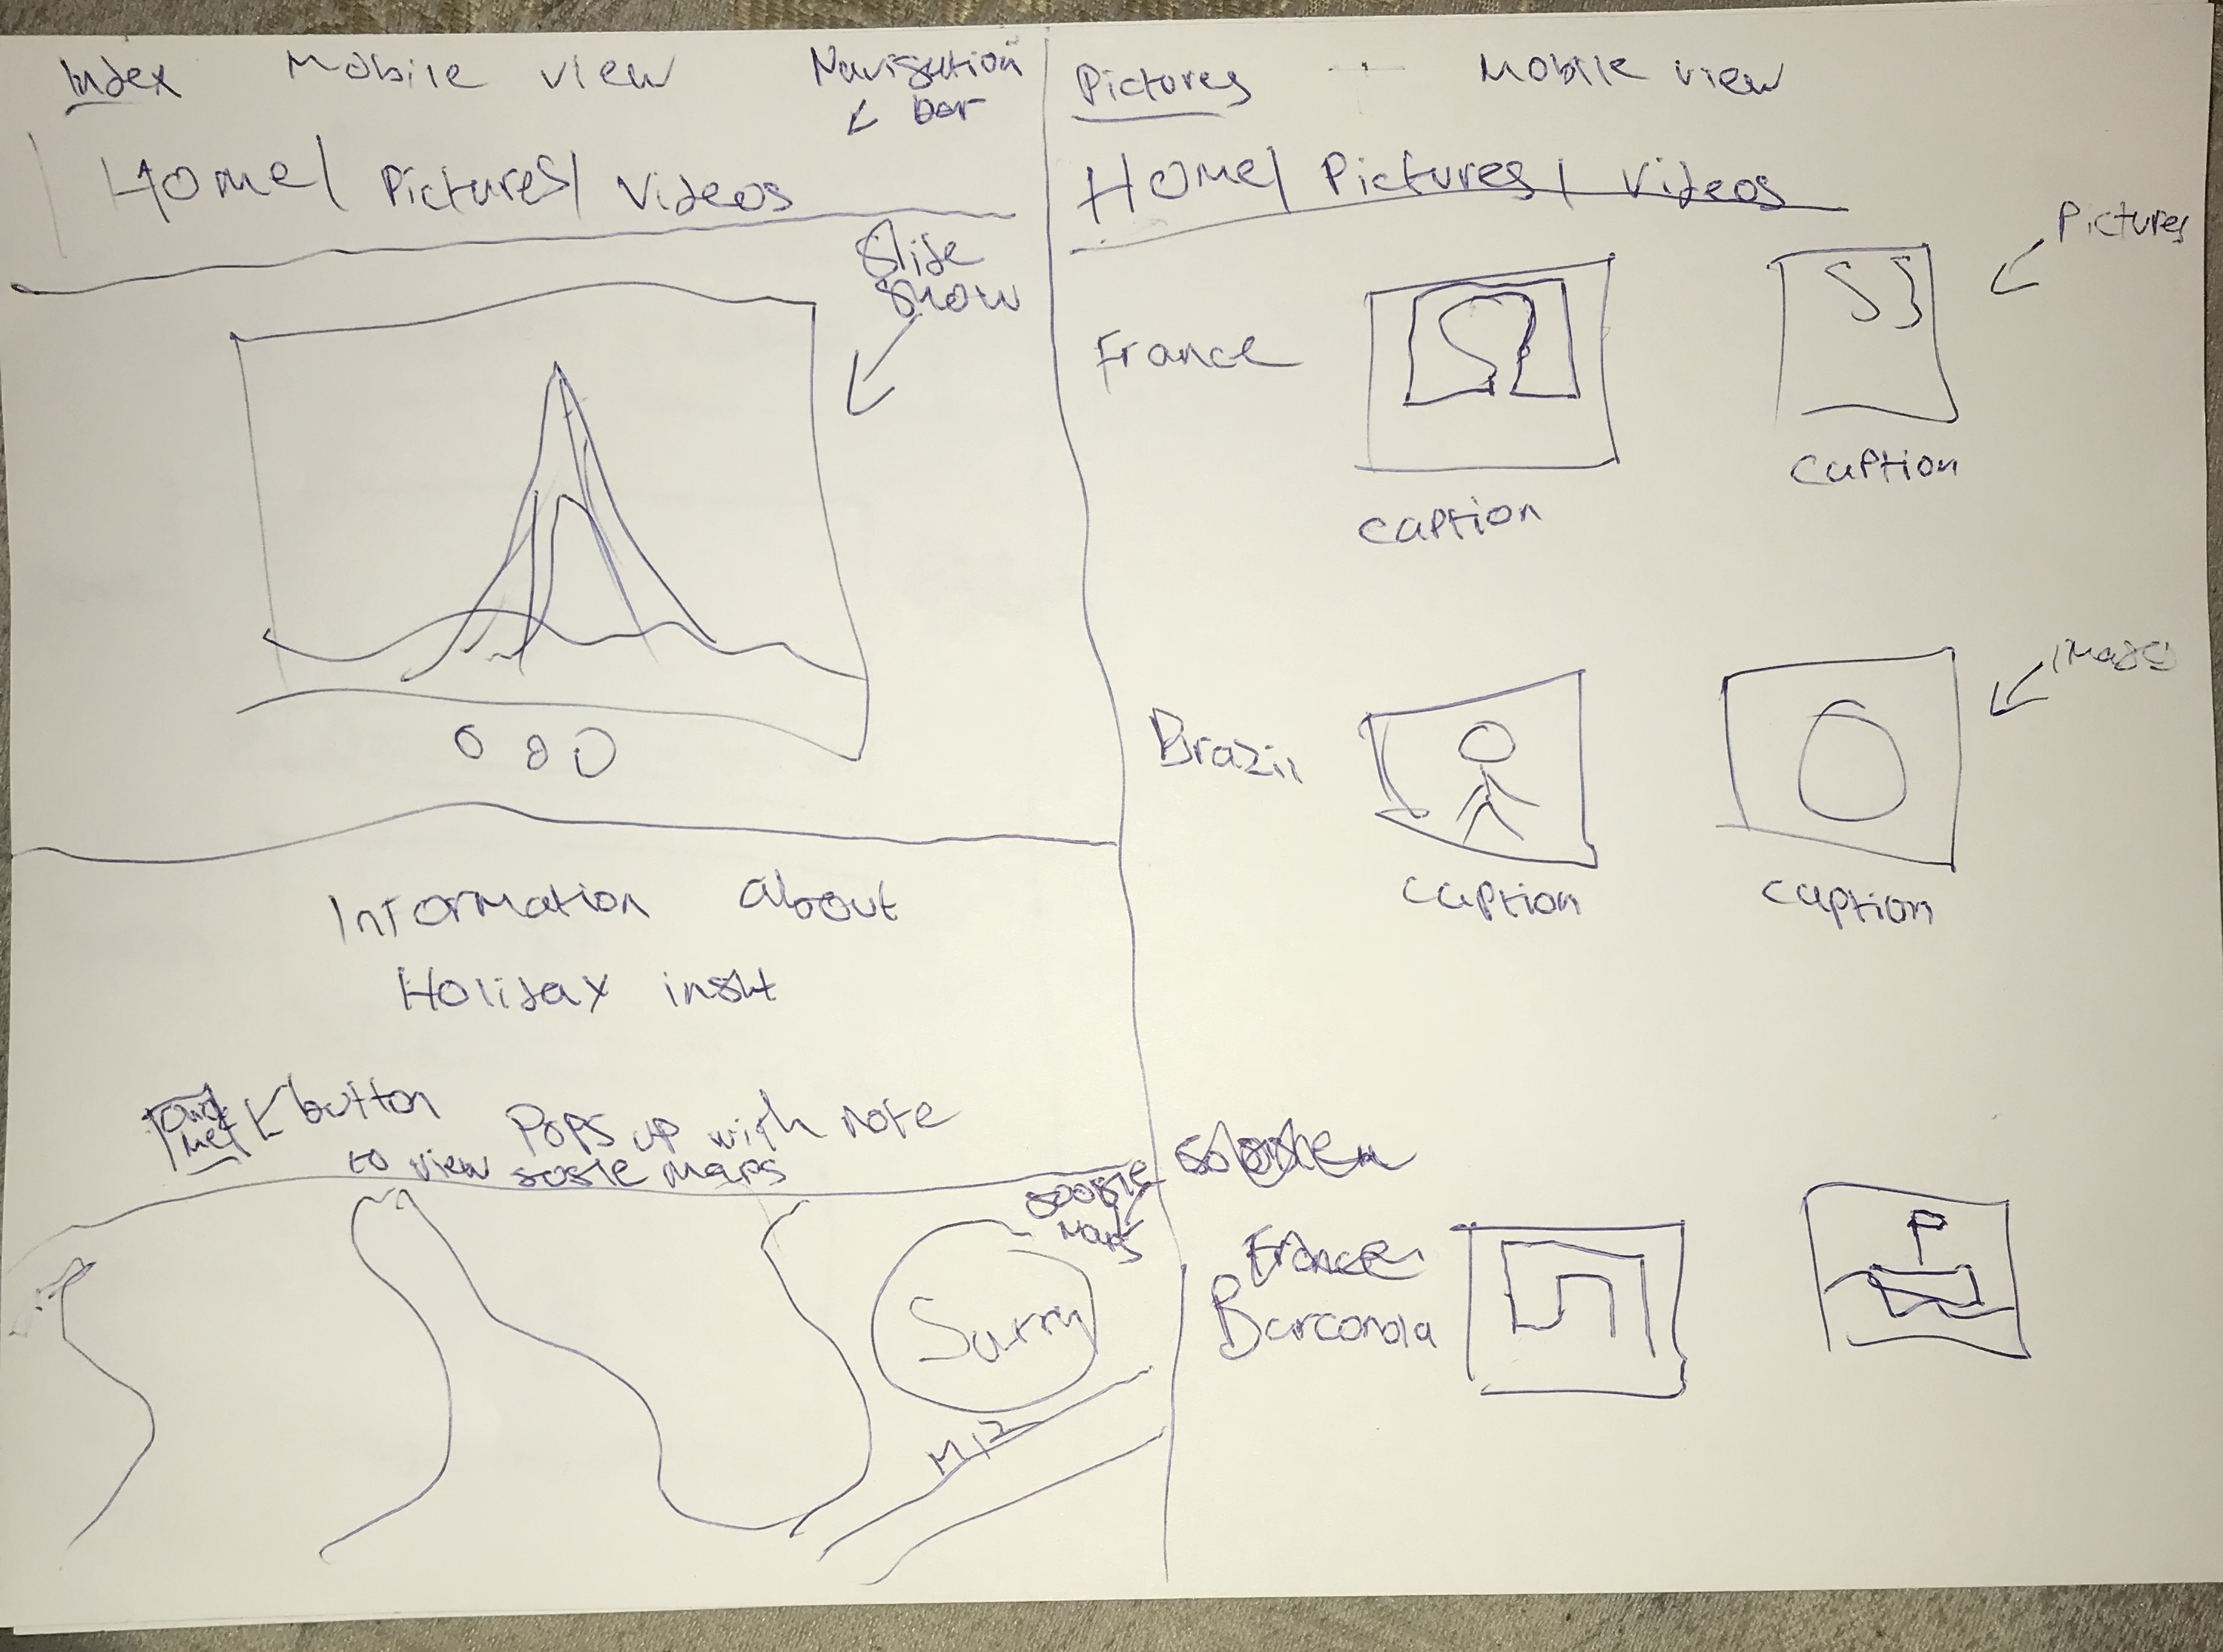 Index Mobile view Navigation
bar
Home / Pictures / Videos
Slide
show
Information about
Holiday
button Pops up with note
to view google maps
google
maps
M12
Pictures Mobile view
Home / Pictures / Videos
Pictures
France
caption
caption
Brazil
caption
caption
France
Barconola